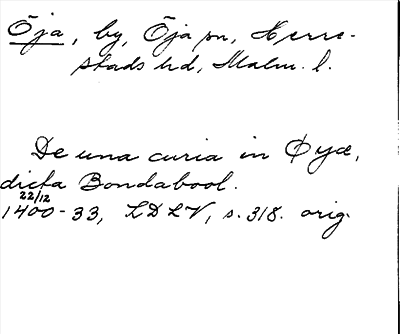 Öja, by, Öja sn, Herre-
stads hd, Malm. l.
De una curia in Øyæ,
dicta Bondabool.
22/12
1400-33, LDLV, s. 318. orig.